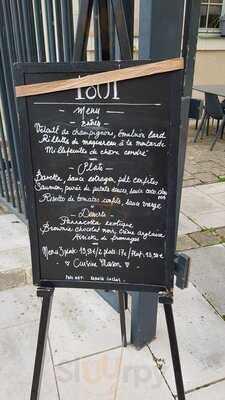 1801
Menu
Entrées
Velouté de champignons, émulsion lard
Rillettes de maquereau à la moutarde
Millefeuilles de chèvre
Plats
Bavette, sauce estragon, pdt confites
Saumon, purée de patate douce, sauce coco
Risotto de tomates confits, sans viande
Desserts
Pannacotta exotique
Brownie chocolat noir, crème anglaise
Assiette de fromages
Menu 3 plats: 19,50€/2 plats: 17€/Plat: 13,50€
♡ Cuisine Maison ♡
Prix net Service inclus
sluurpy